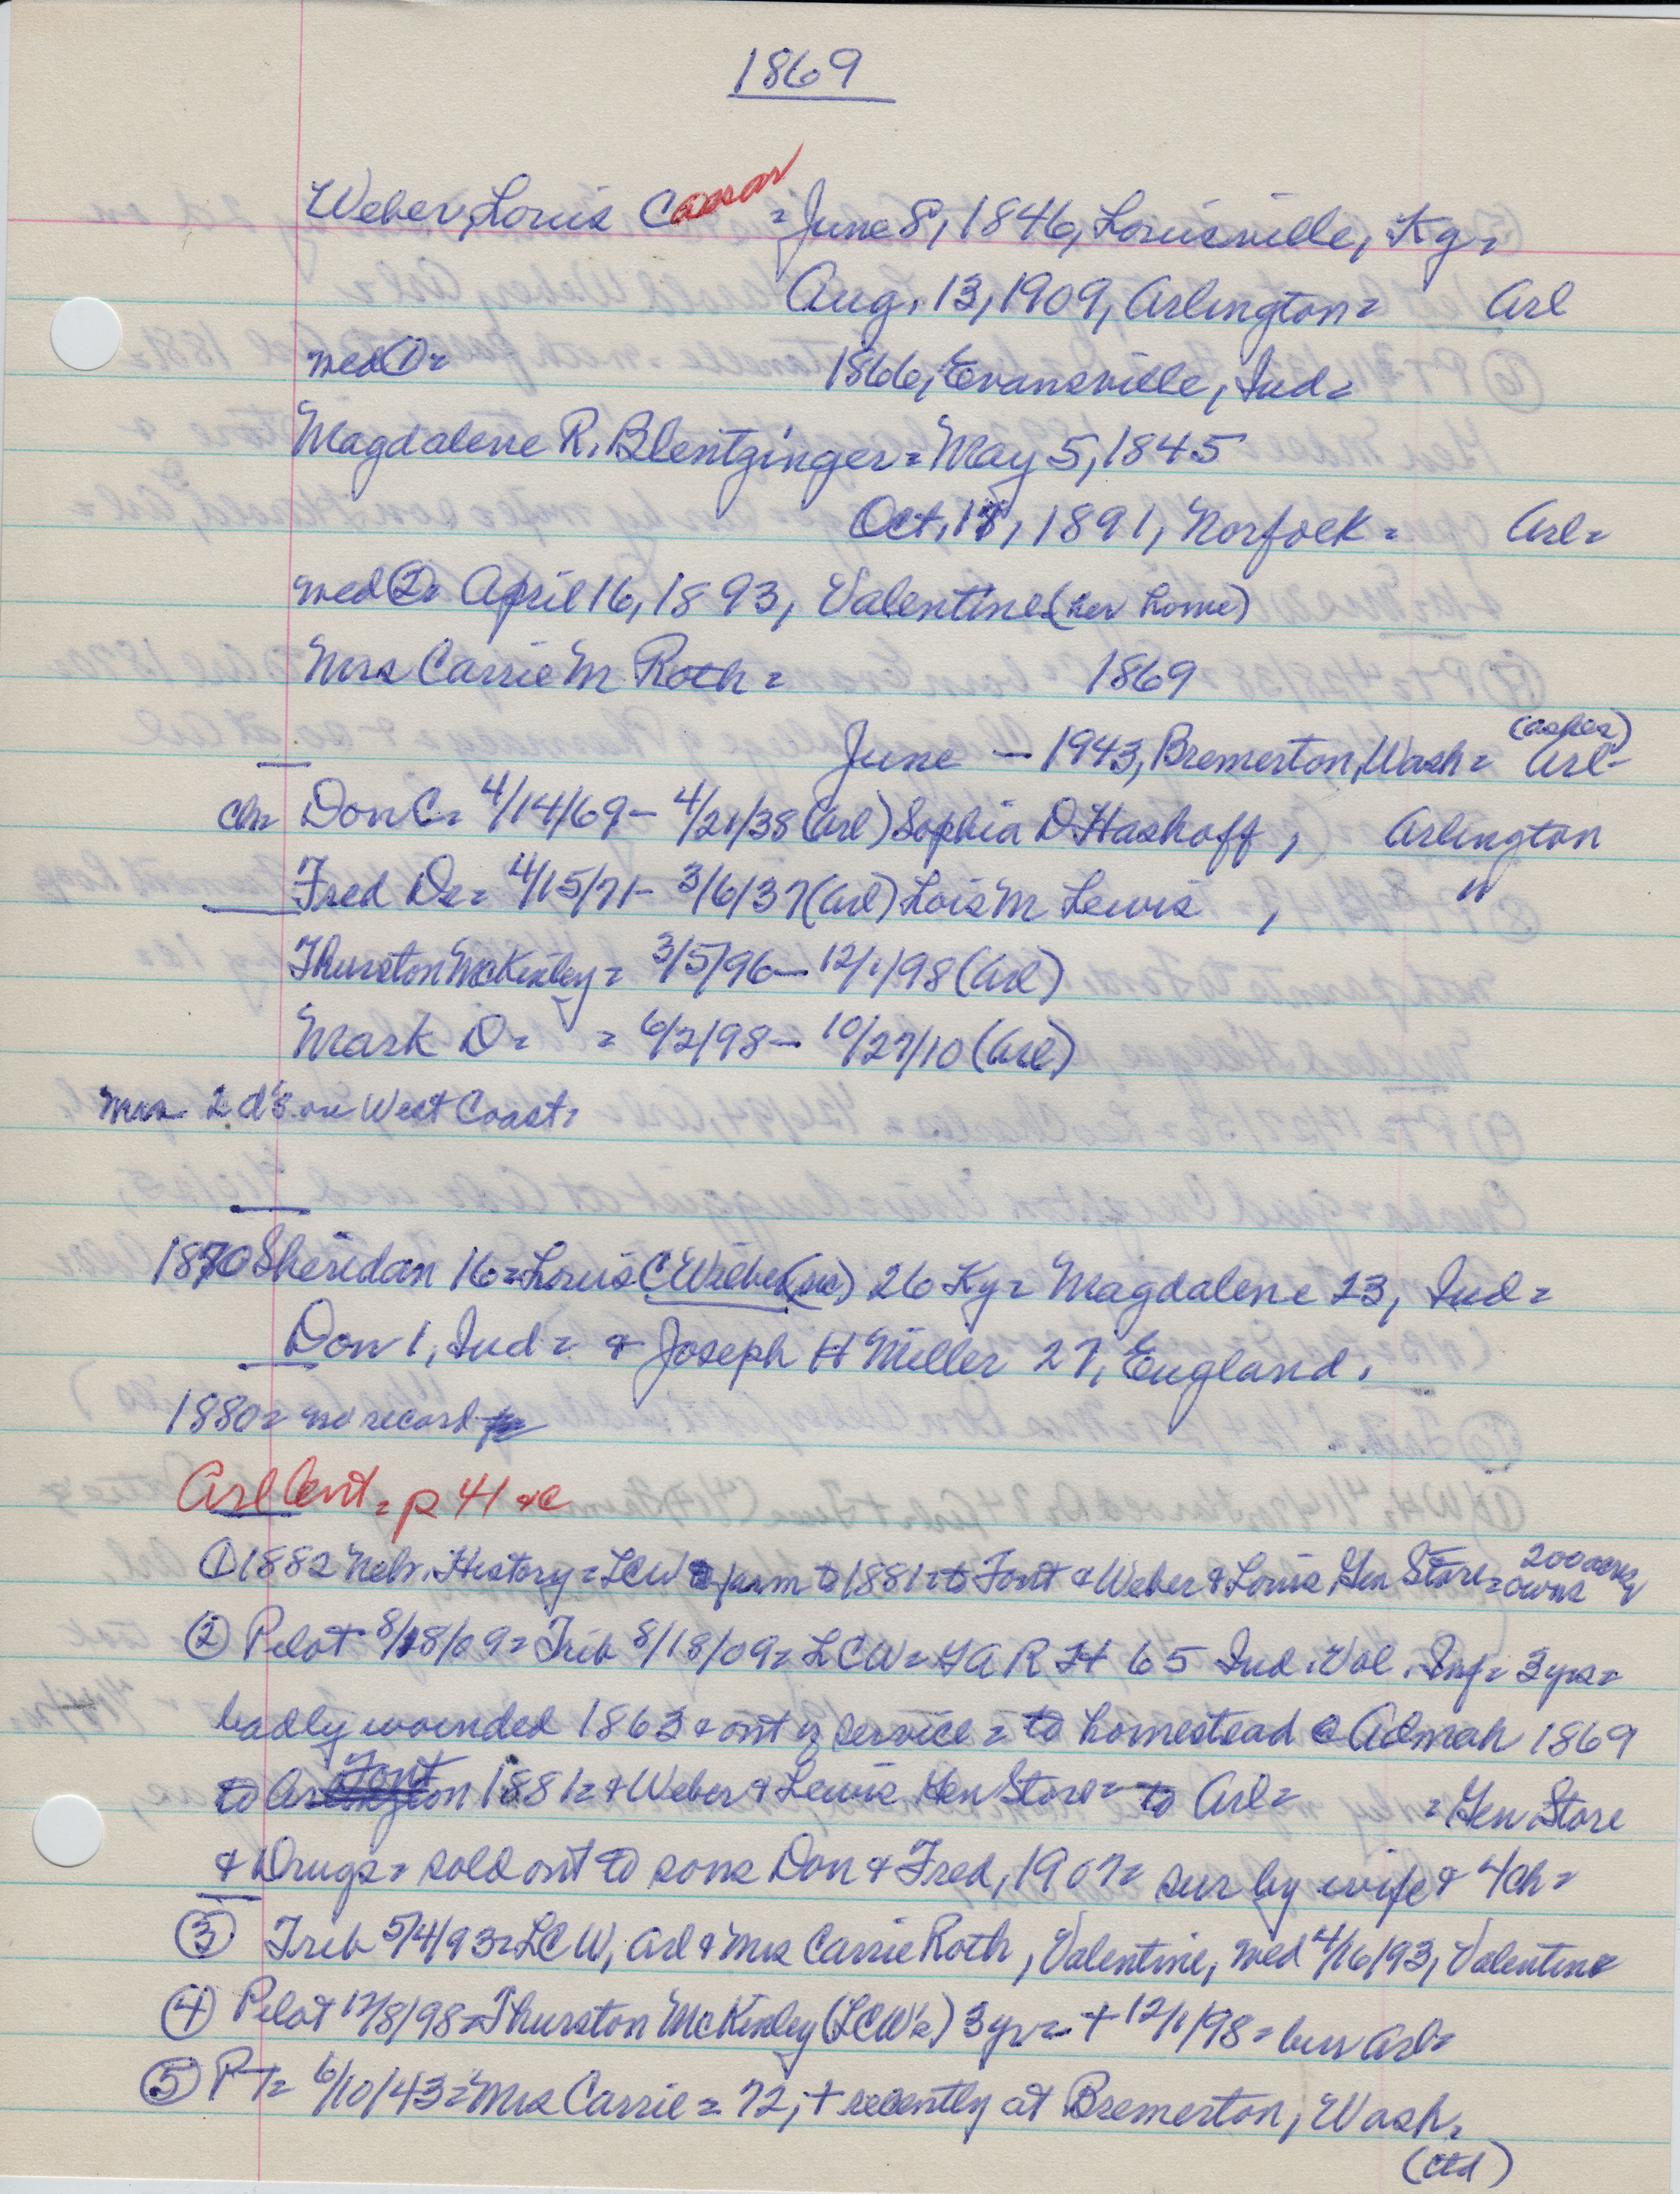 1869
Weber, Louis Caesar = June 8, 1846, Louisville, Ky =
Aug. 13, 1909, Arlington = Arl
med ① = 1866, Evansville, Ind =
Magdalene R. Blentzinger = May 5, 1845
Oct. 18, 1891, Norfolk = Arl =
med ② = April 16, 1893, Valentine (her home)
Mrs Carrie M Roth = 1869
(ashes)
June — 1943, Bremerton, Wash = Arl -
Ch = Don C = 4/14/69 - 4/21/38 (Arl) Sophia D Hashoff, Arlington
Fred De = 4/15/71 - 3/6/37 (Arl) Lois M Lewis, "
Thurston McKinley = 3/5/96 - 12/1/98 (Arl)
Mark D = = 6/2/98 - 10/27/10 (Arl)
2 d's on West Coast =
1870 Sheridan 16 = Louis C Wieber (sic) 26 Ky = Magdalene 23, Ind =
Don 1, Ind = & Joseph H Miller 27, England.
1880 = no record
Arl Cent = p 41 &c
① 1882 Nebr. History = LCW farm to 1881 = to Font & Weber & Louis Gen Store = owns 200 acres
② Pilot 8/18/09 = Trib 8/18/09 = LCW = GAR H 65 Ind. Vol. Inf = 3 yrs =
badly wounded 1863 & out of service = to homestead @ Admah 1869
to Font 1881 = & Weber & Lewis Gen Store = to Arl = = Gen Store
& Drugs = sold out to sons Don & Fred, 1907 = sur by wife & 4 ch =
③ Trib 5/4/93 = LCW, Arl & Mrs Carrie Roth, Valentine, med 4/16/93, Valentine
④ Pilot 12/8/98 = Thurston McKinley (LCW's) 3 yr = + 12/1/98 = bur Arl =
⑤ PT = 6/10/43 = Mrs Carrie = 72, + recently at Bremerton, Wash.
(ctd)